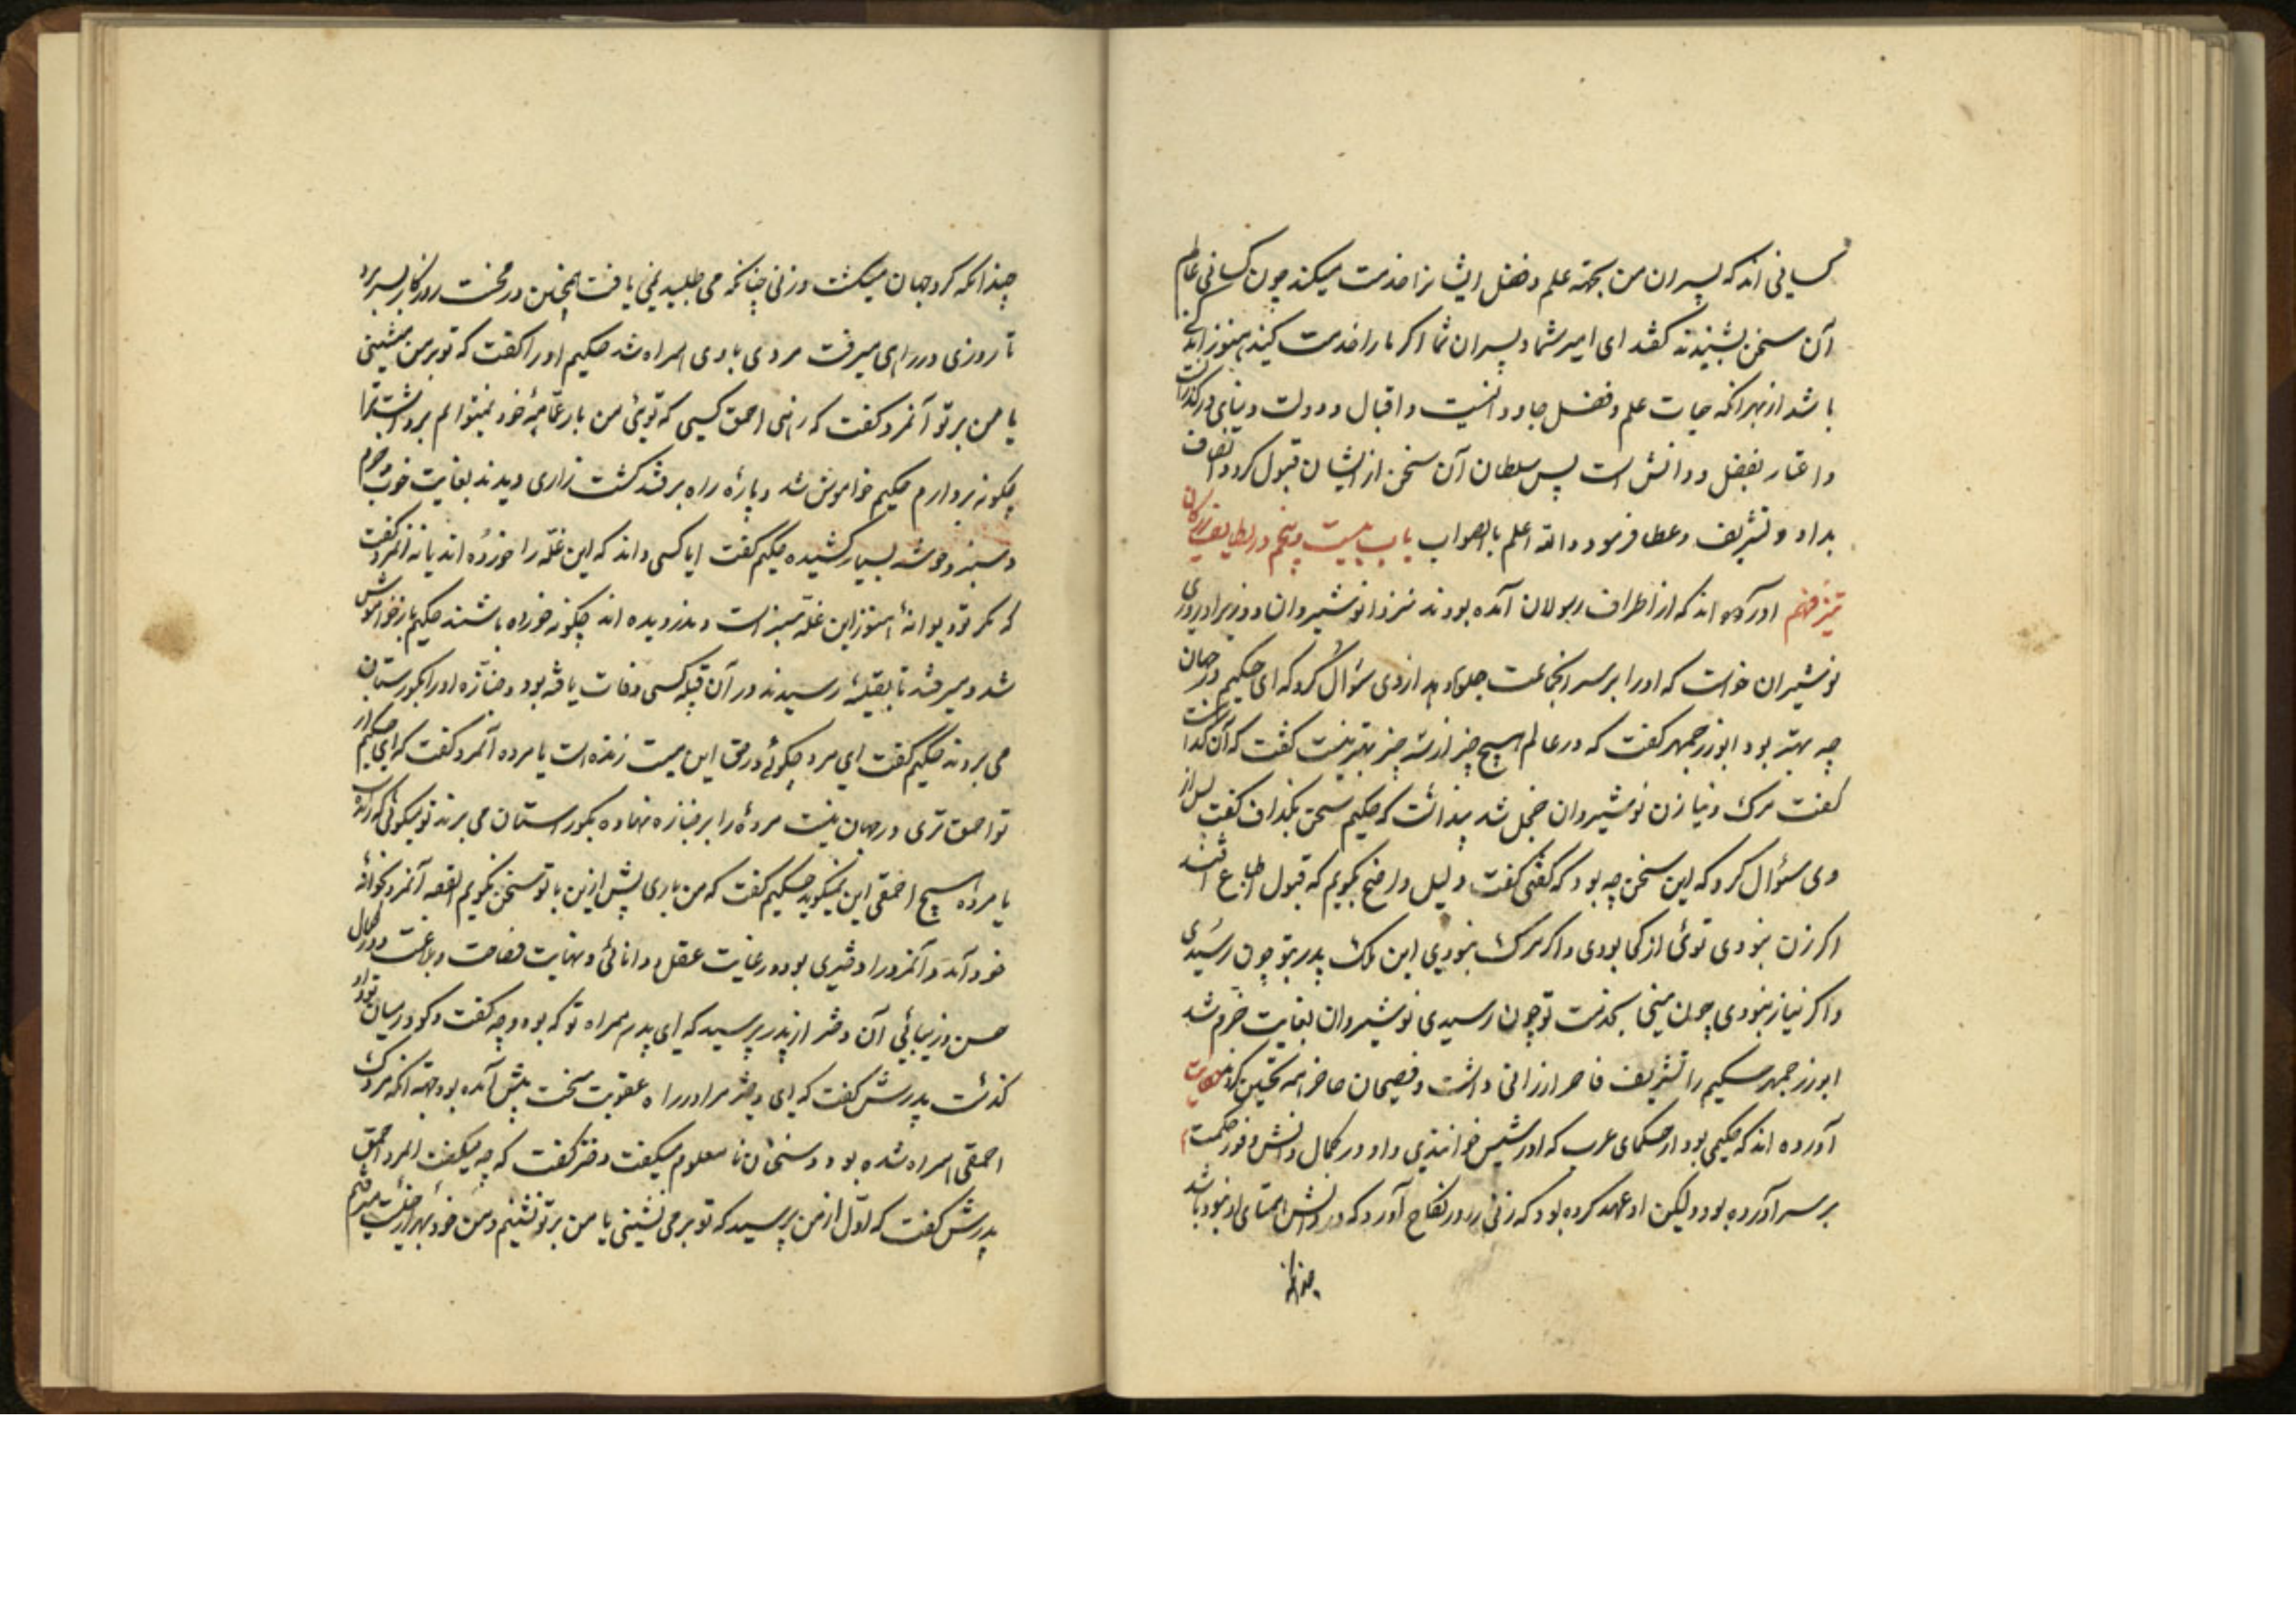 کسانی اند که پسران من بجهته علم و فضل ایشانرا خدمت میکند چون کسانی عالم
آن سخن بشنیدند گفتند ای امیر شما و پسران شما اکر ما را خدمت کنید هنوز اندکی
باشد از بهر انکه حیات علم و فضل جاودانیست و اقبال و دولت دنیایی در گذرانست
و اعتبار بفضل و دانش است پس سلطان آن سخن از ایشان قبول کرد و انصاف
بداد و تشریف و عطا فرمود والله اعلم بالصواب باب بیست و پنجم در لطایف زیرکان
تیز فهم اورده اند که از اطراف رسولان آمده بودند نزد انوشیروان و وزیر او روزی
نوشیروان خواست که او را بر سر انجماعت جلوه دهد از وی سؤال کرد که ای حکیم در جهان
چه بهتر بود ابوزرجمهر کفت که در عالم هیچ چیز از سه چیز بهتر نیست کفت که آن کدامست
کفت مرک و نیاز و زن نوشیروان خجل شد پنداشت که حکیم سخن بگذاف کفت پس از
وی سؤال کرد که این سخن چه بود که کفتی کفت دلیل واضح بکویم که قبول طباع افتد
اکر زن نبودی توئی از کجا بودی و اکر مرک نبودی این ملک پدر بتو چون رسیدی
و اکر نیاز نبودی چون منی بخدمت تو چون رسیدی نوشیروان بغایت خرم شد
ابوزرجمهر حکیم را تشریف فاخر ارزانی داشت و فصیحان حاضر همه تحسین کردند حکایت
آورده اند که حکیمی بود از حکمای عرب که او را شیس خوانندی و او در کمال دانش و فور حکمت
بر سر آورده بود و لیکن او عهد کرده بود که زنی را در نکاح آورد که در دانش همتای او بود باشد
چندانکه
چندانکه کرد جهان میکشت و زنی چنانکه می طلبید نمی یافت همچنین در محنت روزکار بسر برد
تا روزی در راهی میرفت مردی با وی همراه شد حکیم او را کفت که تو بر من نشینی
یا من بر تو آنمرد کفت که زهی احمق کسی که توئی من بار عمامهٔ خود نمیتوانم برداشت ترا
چکونه بردارم حکیم خاموش شد و پارهٔ راه برفتند کشت زاری دیدند بغایت خوب و خرم
و سبز و خوشه بسیار کشیده حکیم کفت ایا کسی داند که این غله را خورده اند یا نه آنمرد کفت
که مکر تو دیوانهٔ هنوز این غله سبز است و ندرویده اند چکونه خورده باشند حکیم باز خاموش
شد و میرفتند تا بقبیلهٔ رسیدند در آن قبیله کسی وفات یافته بود و جنازه او را بکورستان
می بردند حکیم کفت ای مرد چکوئی در حق این میت زنده است یا مرده آنمرد کفت که ای حکیم از
تو احمق تری در جهان نیست مردهٔ را بر جنازه نهاده بکورستان می برند تو میکوئی که زنده است
یا مرده هیچ احمقی این نمیکوید حکیم کفت که من باری پیش ازین با تو سخن نکویم القصه آنمرد بخوانهٔ
خود آمد و آنمرد را دختری بود در غایت عقل و دانائی و نهایت فصاحت و بلاغت و در کمال
حسن و زیبائی آن دختر از پدر پرسید که ای پدر همراه تو که بود و چه کفت و کو در میان تو و او
گذشت پدرش کفت که ای دختر مرا در راه عقوبت سخت پیش آمده بود جهته انکه مردک
احمقی همراه شده بود و سخنان نامعلوم میکفت دختر کفت که چه میکفت المرد احمق
پدرش کفت که اوّل از من پرسید که تو بر من نشینی یا من بر تو نشینم و من خود بهزار